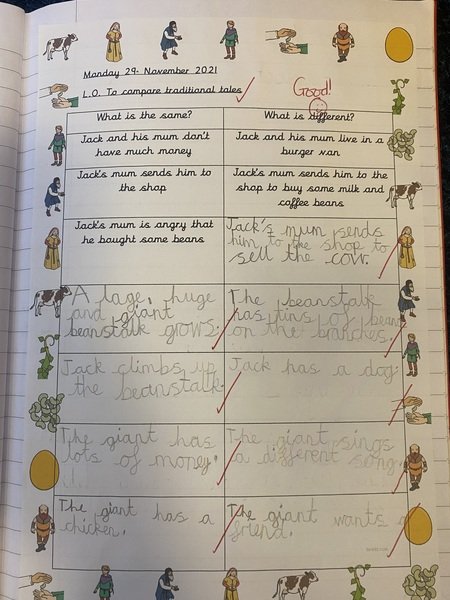 Monday 29. November 2021
L.O. To compare traditional tales
Good!
What is the same?
What is different?
Jack and his mum don't
have much money
Jack and his mum live in a
burger van
Jack's mum sends him to
the shop
Jack's mum sends him to the
shop to buy some milk and
coffee beans
Jack's mum is angry that
he bought some beans
Jack's mum sends
him to the shop to
sell the cow.
A lage, huge
and giant
beanstalk grows.
The beanstalk
has tins of beans
on the branches.
Jack climbs up
the beanstalk.
Jack has a dog.
The giant has
lots of money.
The giant sings
a different song.
The giant has a
chicken.
The giant wants a
friend.